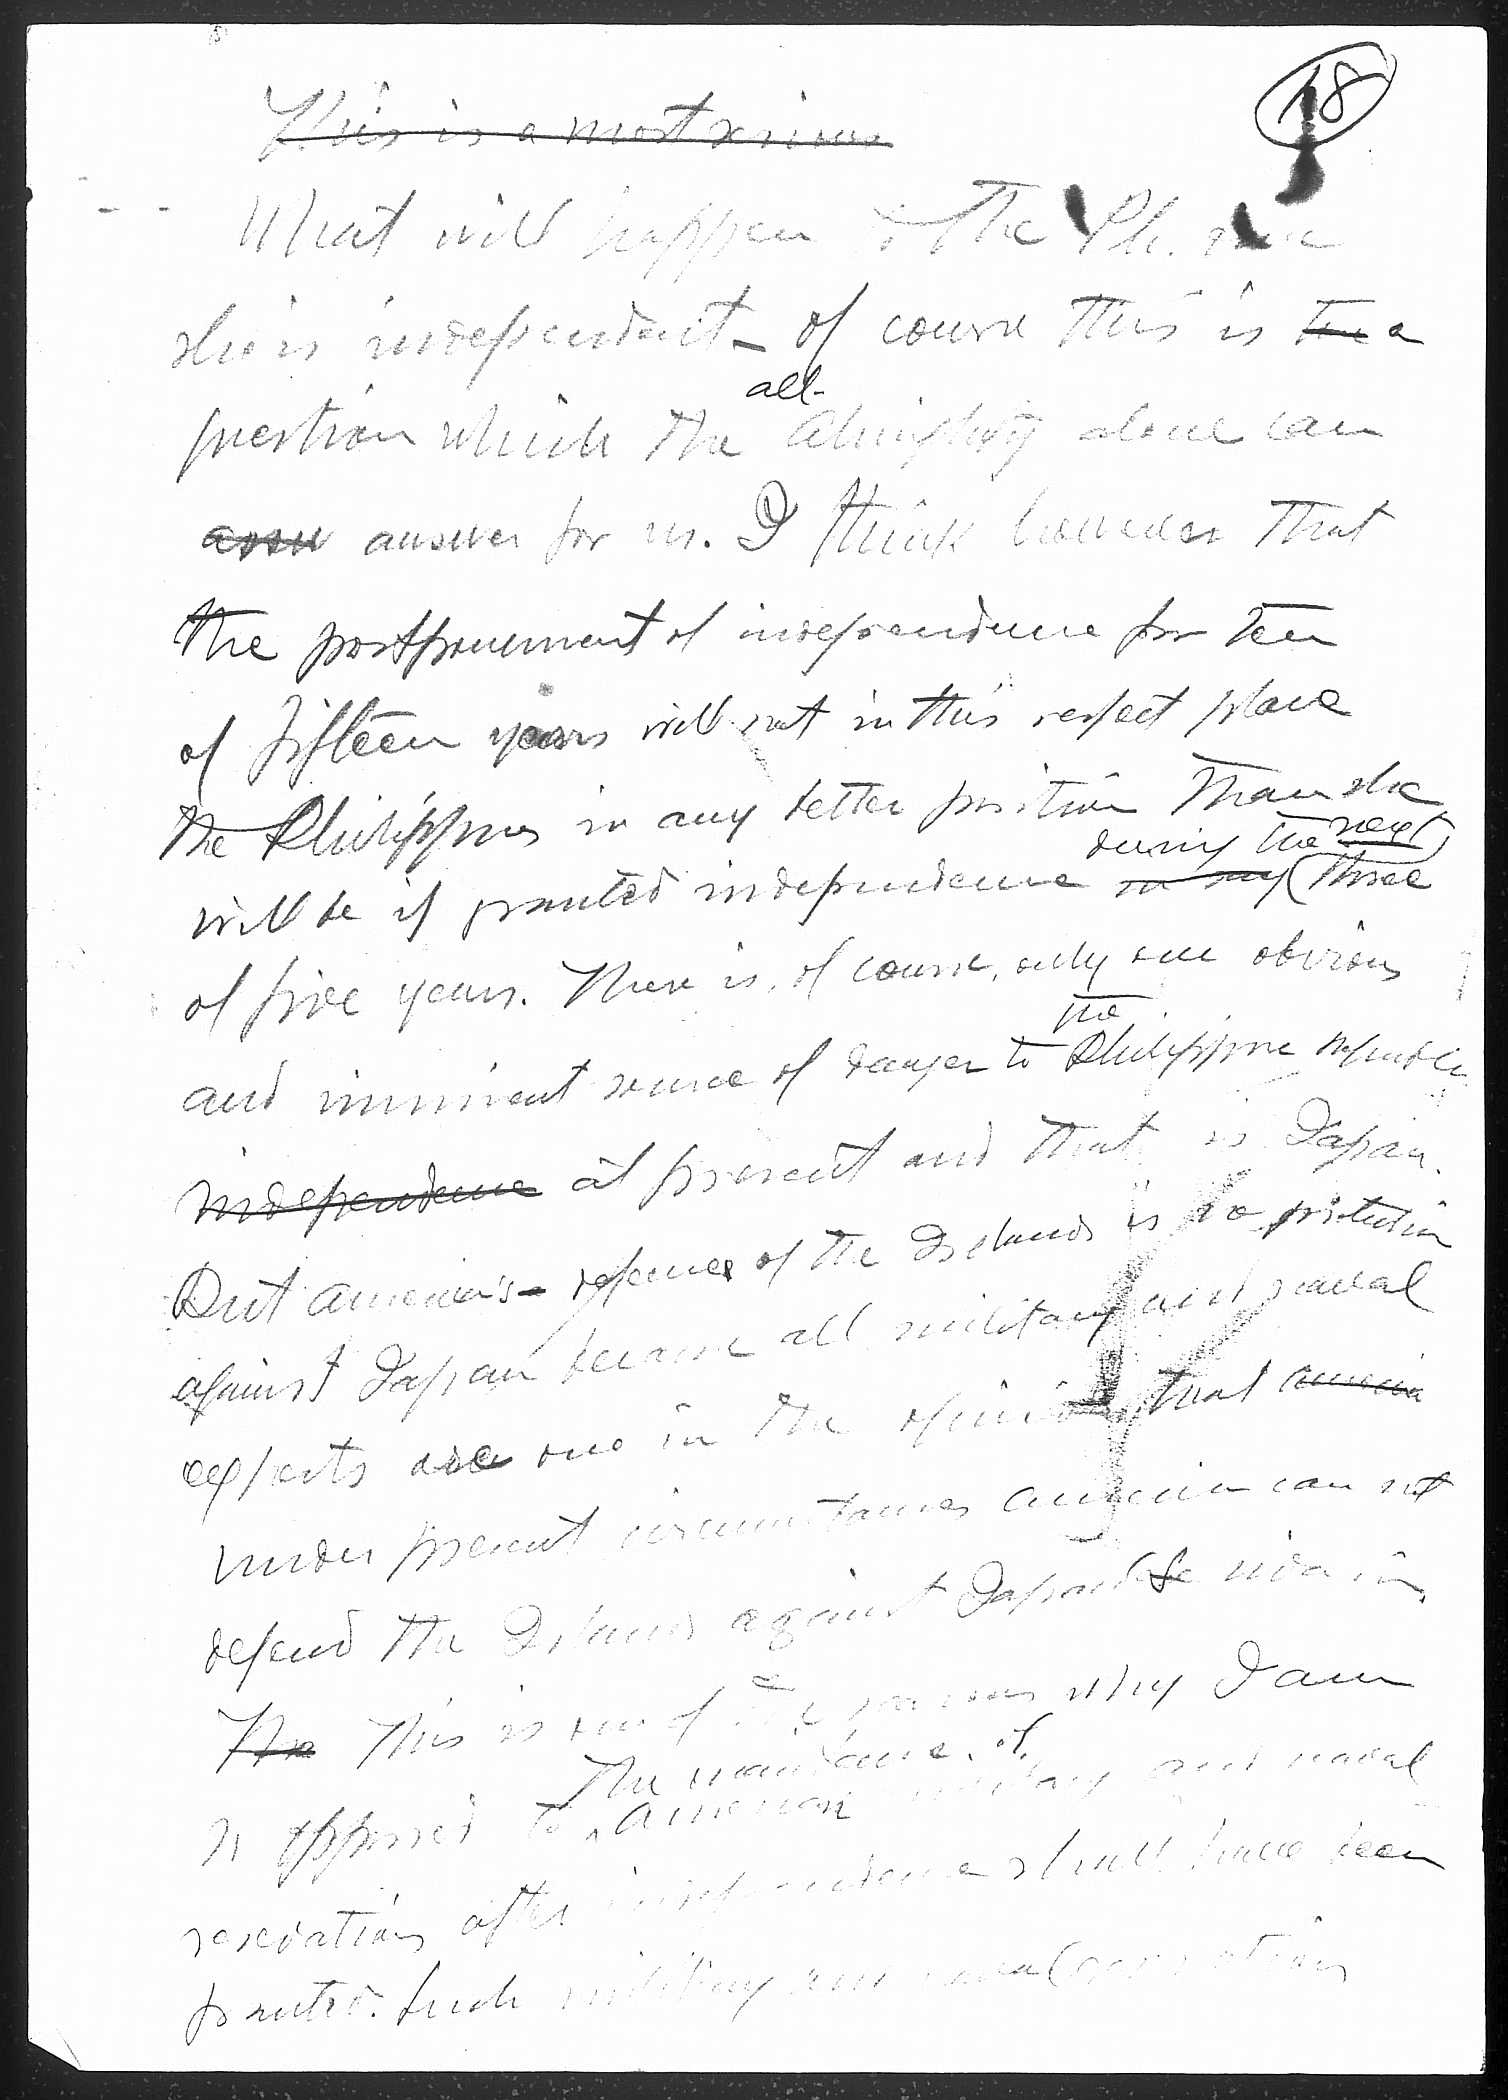 18
This is a most serious
What will happen to the Ph. once
she is independent - of course this is the a
question which the all-
Almighty alone can
assu answer for us. I think however that
the postponement of independence for ten
of fifteen years will not in this respect place
the Philippines in any better position than she
during the next
will be if granted independence in say three
of five years. There is, of course, only one obvious
the
and imminent source of danger to Philippine republic
independence at present and that is Japan.
But America's - defense of the Islands is no protection
against Japan because all military and naval
experts are one in the opinion that America
under present circumstances America can not
defend the Islands against Japanese
The This is one of the reasons why I am
the maintenance of
opposed to American military and naval
reservations after independence shall have been
granted. Such military and naval reservations